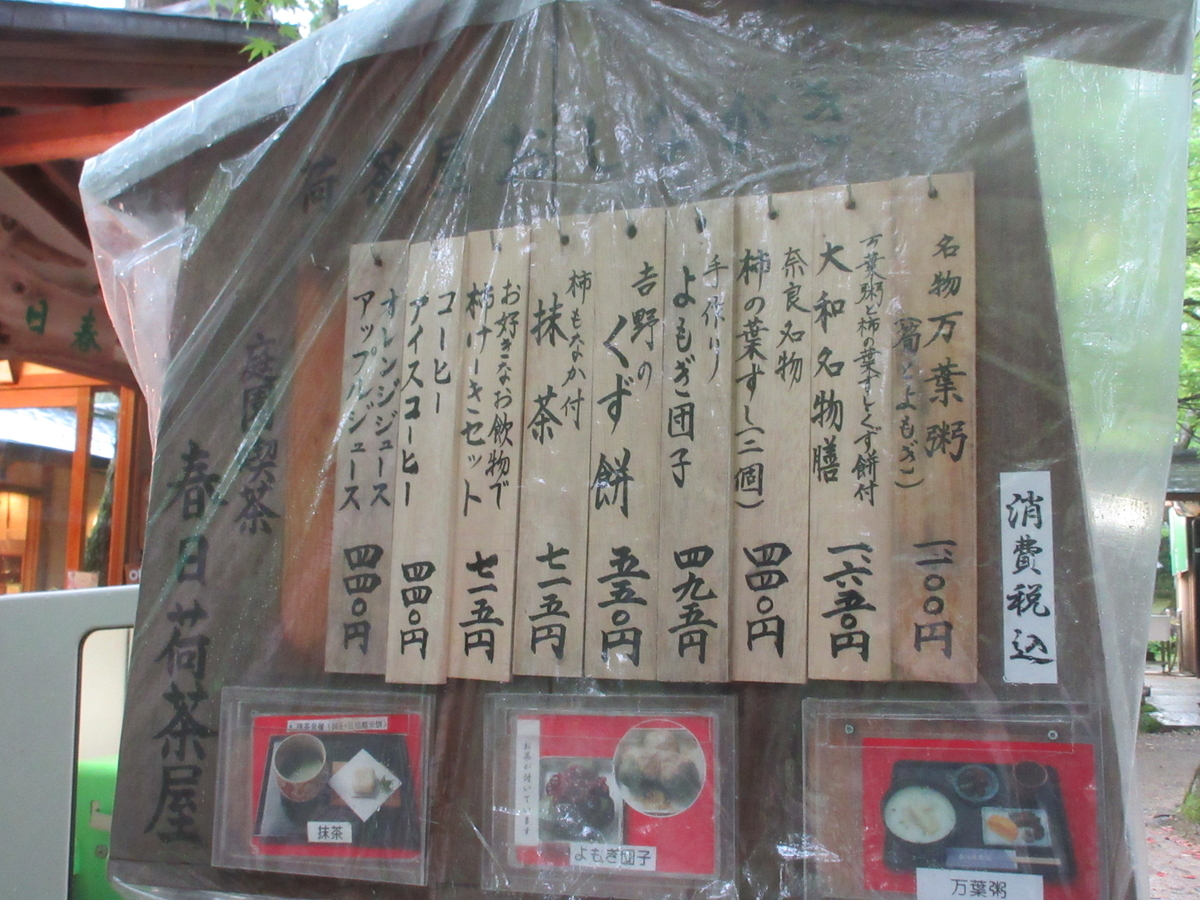 荷茶屋おしながき
名物万葉粥
一一〇〇円
万葉粥と柿の葉すしとくず餅付
大和名物膳
一六五〇円
奈良名物
柿の葉ずし(二個)
四四〇円
手作り
よもぎ団子
四九五円
吉野の
くず餅
五五〇円
柿もなか付
抹茶
七一五円
お好きなお飲物で
柿けーきセット
七一五円
コーヒー
アイスコーヒー
四四〇円
オレンジジュース
アップルジュース
四四〇円
消費税込
庭園喫茶
春日荷茶屋
春日
抹茶
お茶が付いています
よもぎ団子
万葉粥